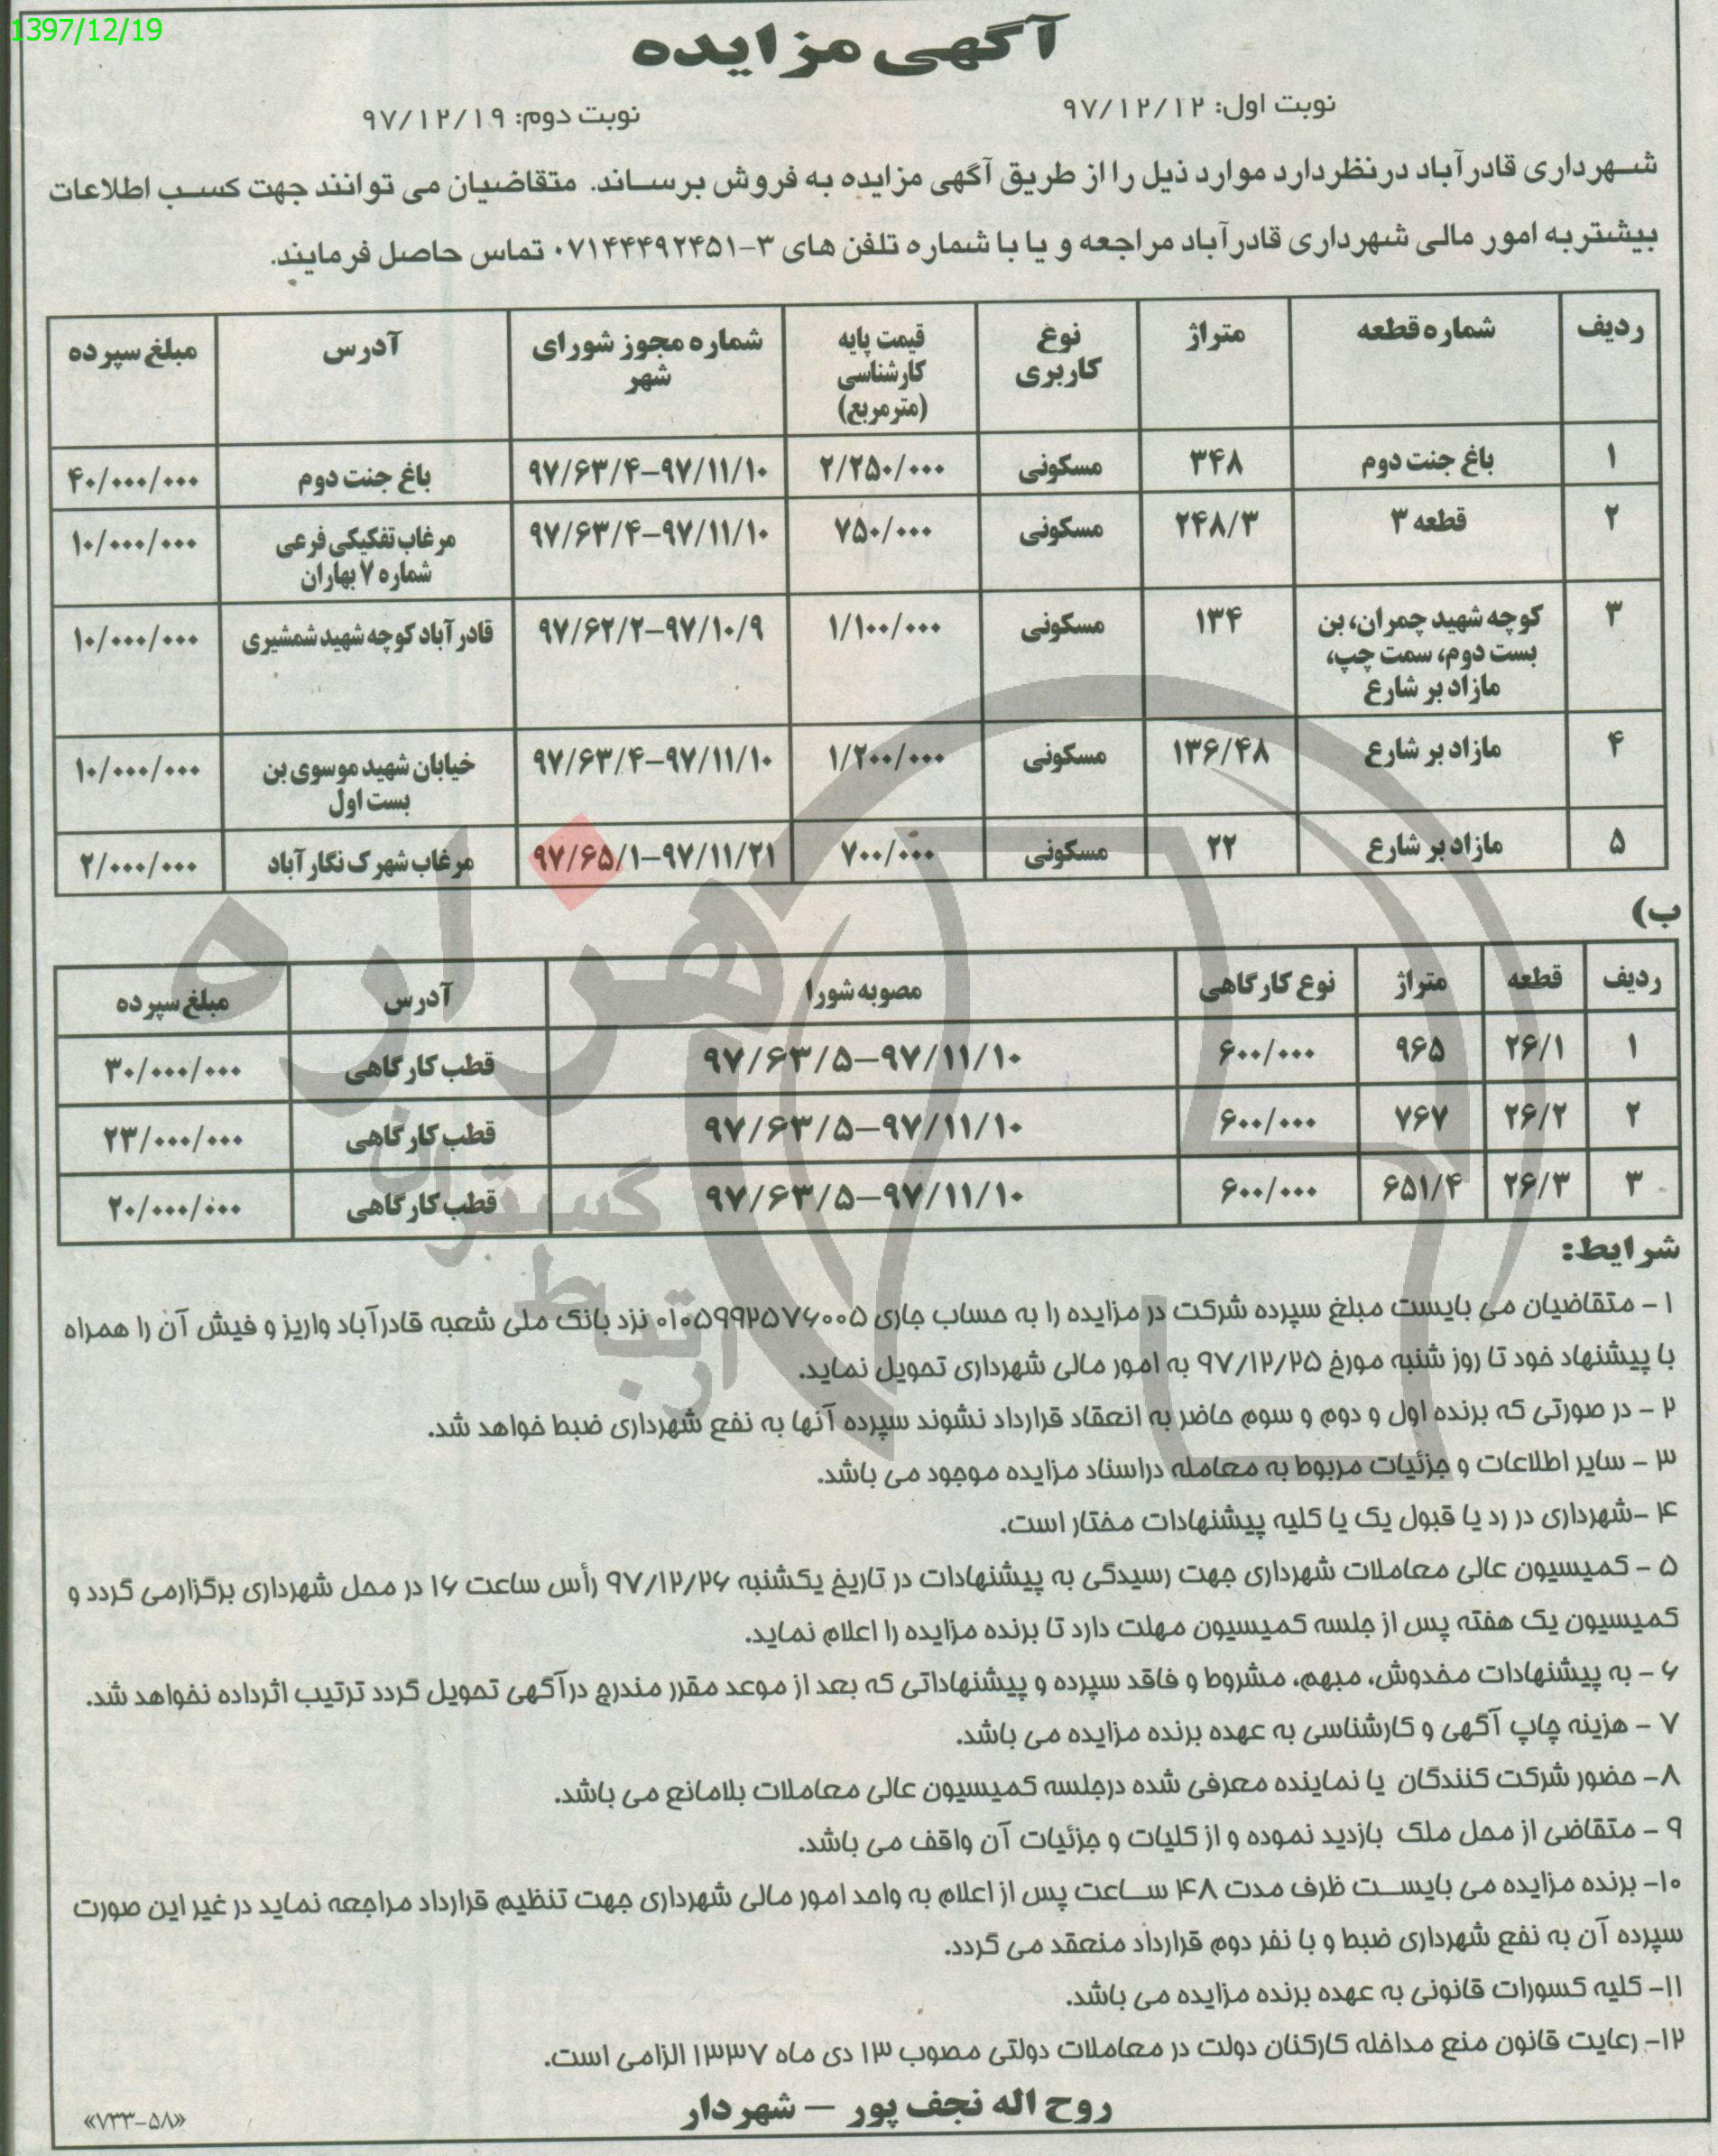 1397/12/19
آگهی مزایده
نوبت اول: ۹۷/۱۲/۱۲ نوبت دوم: ۹۷/۱۲/۱۹
شهرداری قادرآباد درنظردارد موارد ذیل را از طریق آگهی مزایده به فروش برساند. متقاضیان می توانند جهت کسب اطلاعات
بیشتر به امور مالی شهرداری قادرآباد مراجعه و یا با شماره تلفن های ۳-۰۷۱۴۴۴۹۲۴۵۱ تماس حاصل فرمایند.
ردیف شماره قطعه متراژ نوع کاربری قیمت پایه کارشناسی (مترمربع) شماره مجوز شورای شهر آدرس مبلغ سپرده
۱ باغ جنت دوم ۳۴۸ مسکونی ۲/۲۵۰/۰۰۰ ۹۷/۶۳/۴-۹۷/۱۱/۱۰ باغ جنت دوم ۴۰/۰۰۰/۰۰۰
۲ قطعه ۳ ۲۴۸/۳ مسکونی ۷۵۰/۰۰۰ ۹۷/۶۳/۴-۹۷/۱۱/۱۰ مرغاب تفکیکی فرعی شماره ۷ بهاران ۱۰/۰۰۰/۰۰۰
۳ کوچه شهید چمران، بن بست دوم، سمت چپ، مازاد بر شارع ۱۳۴ مسکونی ۱/۱۰۰/۰۰۰ ۹۷/۶۲/۲-۹۷/۱۰/۹ قادرآباد کوچه شهید شمشیری ۱۰/۰۰۰/۰۰۰
۴ مازاد بر شارع ۱۳۶/۴۸ مسکونی ۱/۲۰۰/۰۰۰ ۹۷/۶۳/۴-۹۷/۱۱/۱۰ خیابان شهید موسوی بن بست اول ۱۰/۰۰۰/۰۰۰
۵ مازاد بر شارع ۲۲ مسکونی ۷۰۰/۰۰۰ ۹۷/۶۵/۱-۹۷/۱۱/۲۱ مرغاب شهرک نگارآباد ۲/۰۰۰/۰۰۰
ب)
ردیف قطعه متراژ نوع کارگاهی مصوبه شورا آدرس مبلغ سپرده
۱ ۲۶/۱ ۹۶۵ ۶۰۰/۰۰۰ ۹۷/۶۳/۵-۹۷/۱۱/۱۰ قطب کارگاهی ۳۰/۰۰۰/۰۰۰
۲ ۲۶/۲ ۷۶۷ ۶۰۰/۰۰۰ ۹۷/۶۳/۵-۹۷/۱۱/۱۰ قطب کارگاهی ۲۳/۰۰۰/۰۰۰
۳ ۲۶/۳ ۶۵۱/۴ ۶۰۰/۰۰۰ ۹۷/۶۳/۵-۹۷/۱۱/۱۰ قطب کارگاهی ۲۰/۰۰۰/۰۰۰
هزاره
گستران
ارتباط
شرایط:
۱- متقاضیان می بایست مبلغ سپرده شرکت در مزایده را به حساب جاری ۰۱۰۵۹۹۲۵۷۶۰۰۵ نزد بانک ملی شعبه قادرآباد واریز و فیش آن را همراه
با پیشنهاد خود تا روز شنبه مورخ ۹۷/۱۲/۲۵ به امور مالی شهرداری تحویل نماید.
۲- در صورتی که برنده اول و دوم و سوم حاضر به انعقاد قرارداد نشوند سپرده آنها به نفع شهرداری ضبط خواهد شد.
۳- سایر اطلاعات و جزئیات مربوط به معامله دراسناد مزایده موجود می باشد.
۴-شهرداری در رد یا قبول یک یا کلیه پیشنهادات مختار است.
۵- کمیسیون عالی معاملات شهرداری جهت رسیدگی به پیشنهادات در تاریخ یکشنبه ۹۷/۱۲/۲۶ رأس ساعت ۱۶ در محل شهرداری برگزارمی گردد و
کمیسیون یک هفته پس از جلسه کمیسیون مهلت دارد تا برنده مزایده را اعلام نماید.
۶- به پیشنهادات مخدوش، مبهم، مشروط و فاقد سپرده و پیشنهاداتی که بعد از موعد مقرر مندرج درآگهی تحویل گردد ترتیب اثرداده نخواهد شد.
۷- هزینه چاپ آگهی و کارشناسی به عهده برنده مزایده می باشد.
۸- حضور شرکت کنندگان یا نماینده معرفی شده درجلسه کمیسیون عالی معاملات بلامانع می باشد.
۹- متقاضی از محل ملک بازدید نموده و از کلیات و جزئیات آن واقف می باشد.
۱۰- برنده مزایده می بایست ظرف مدت ۴۸ ساعت پس از اعلام به واحد امور مالی شهرداری جهت تنظیم قرارداد مراجعه نماید در غیر این صورت
سپرده آن به نفع شهرداری ضبط و با نفر دوم قرارداد منعقد می گردد.
۱۱- کلیه کسورات قانونی به عهده برنده مزایده می باشد.
۱۲- رعایت قانون منع مداخله کارکنان دولت در معاملات دولتی مصوب ۱۳ دی ماه ۱۳۳۷ الزامی است.
روح اله نجف پور – شهردار
«۷۳۳-۵۸»